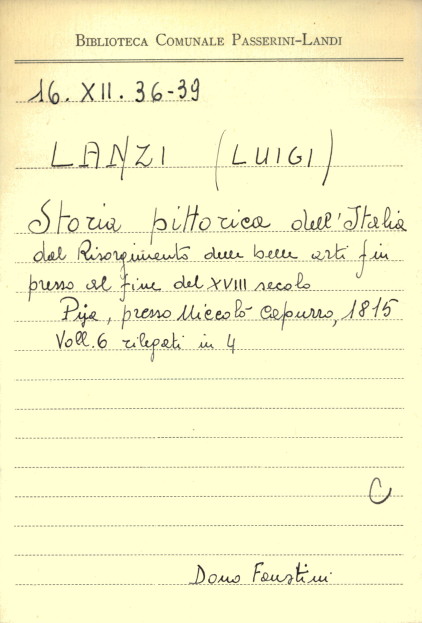 BIBLIOTECA COMUNALE PASSERINI-LANDI
16. XII. 36-39
LANZI (LUIGI)
Storia pittorica dell'Italia
dal Risorgimento delle belle arti fin
presso al fine del XVIII secolo
Pisa, presso Niccolò Capurro, 1815
Voll. 6 rilegati in 4
C
Dono Faustini